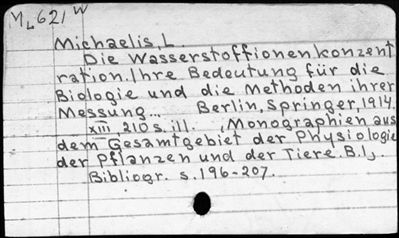 ML621 W
Michaelis, L.
Die Wasserstoffionenkonzent
ration. Ihre Bedeutung für die
Biologie und die Methoden ihrer
Messung... Berlin, Springer, 1914.
xiii 210 s. ill. „Monographien aus
dem Gesamtgebiet der Physiologie
der Pflanzen und der Tiere. B.1„.
Bibliogr. s. 196-207.